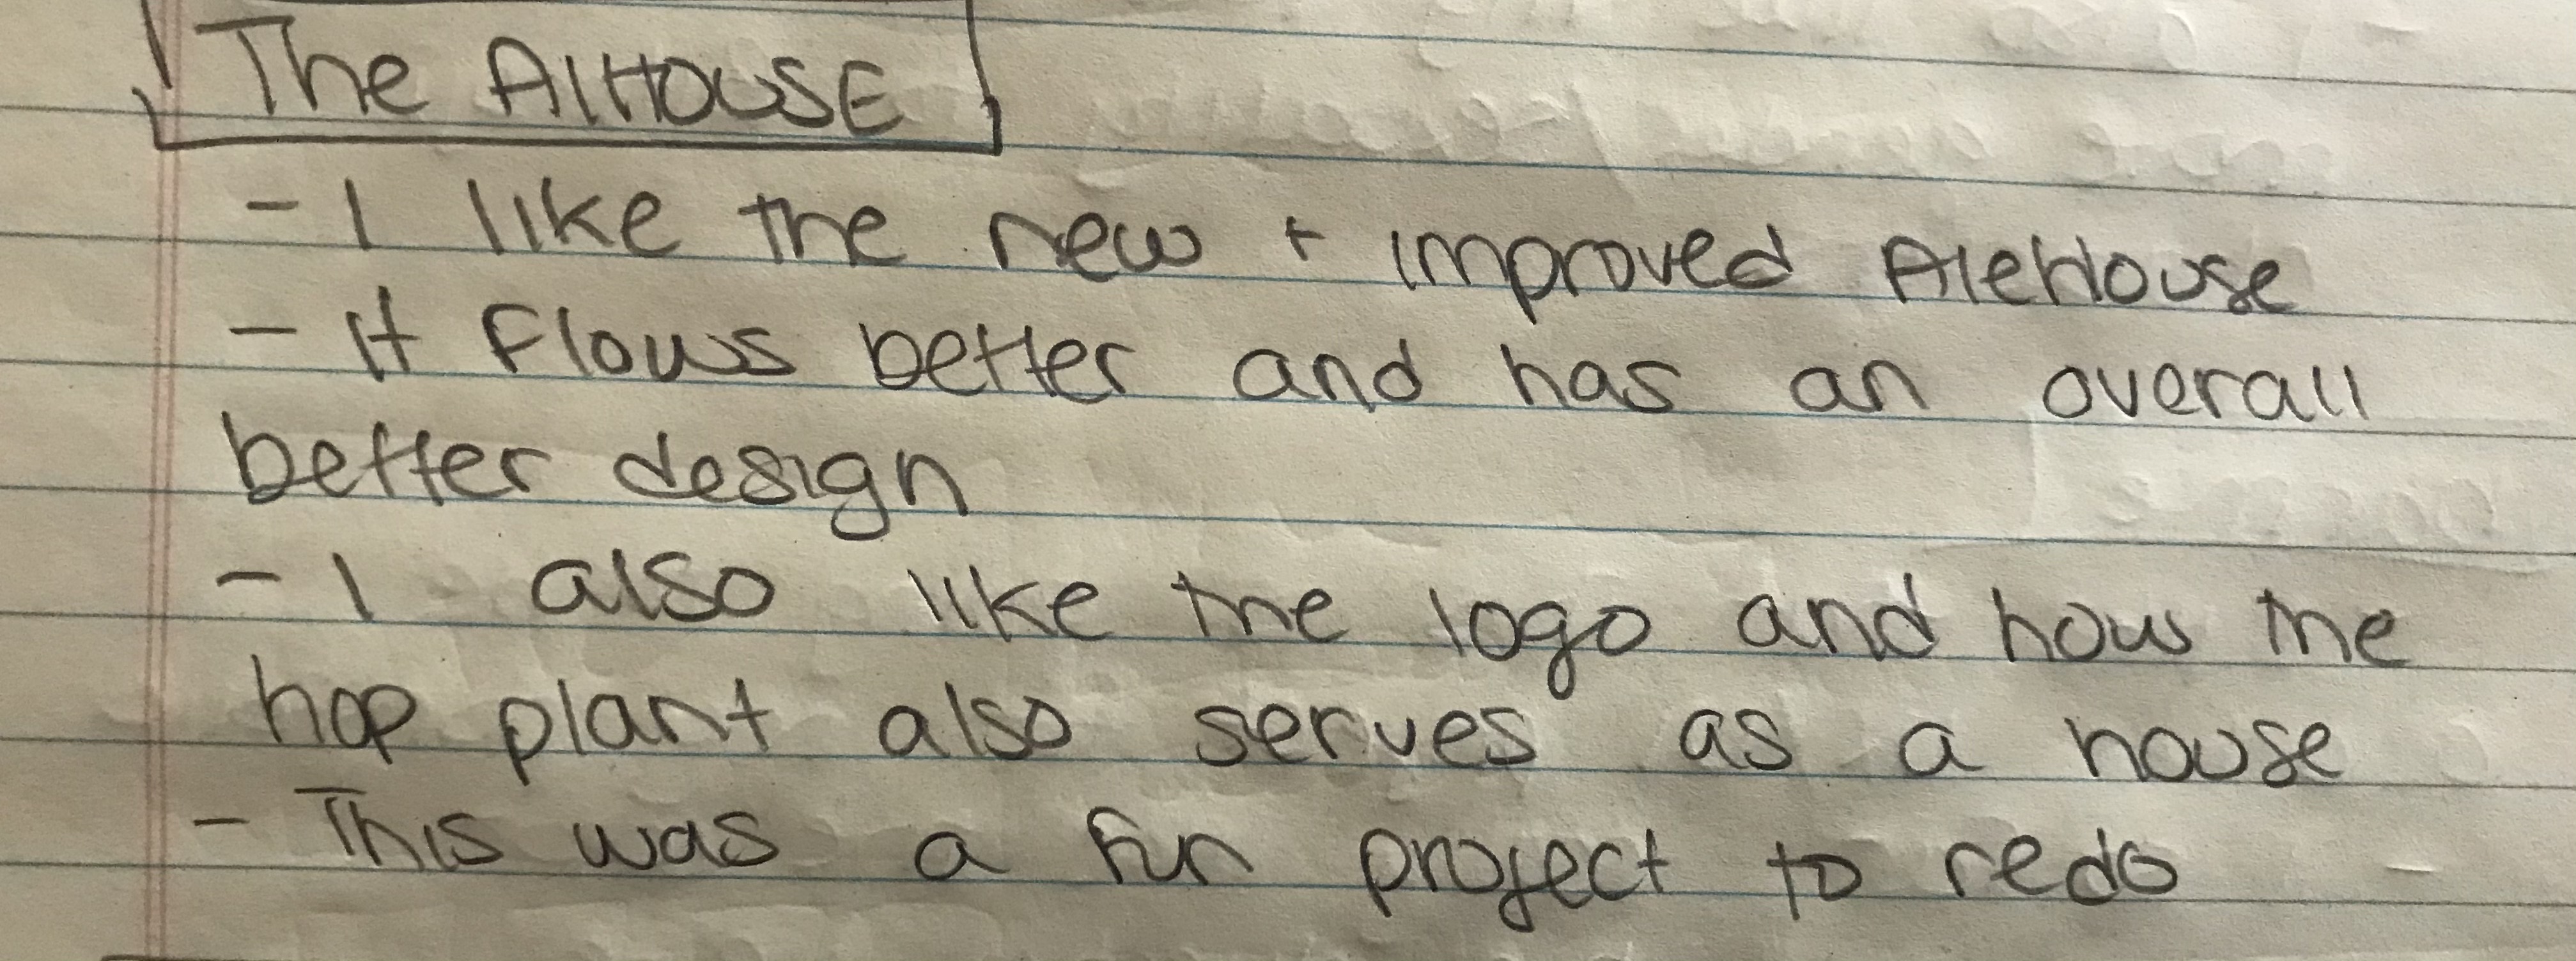 The AlHOUSE
- I like the new + improved AleHouse
- It Flows better and has an overall
better design
- I also like the logo and how the
hop plant also serves as a house
- This was a fun project to redo